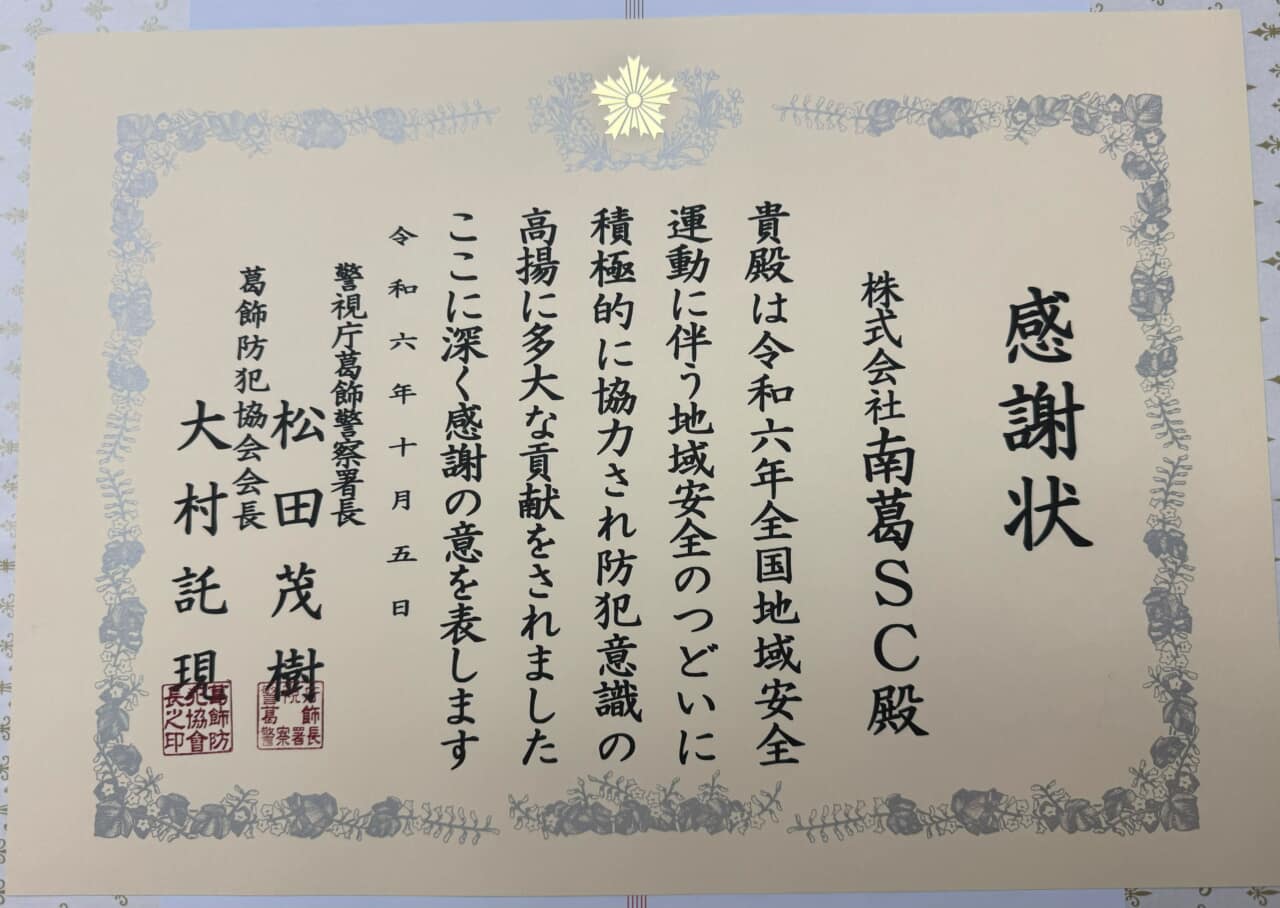 感謝状
株式会社南葛SC殿
貴殿は令和六年全国地域安全
運動に伴う地域安全のつどいに
積極的に協力され防犯意識の
高揚に多大な貢献をされました
ここに深く感謝の意を表します
令和六年十月五日
警視庁葛飾警察署長
松田茂樹
葛飾防犯協会会長
大村託現
葛飾防
犯協會
長之印